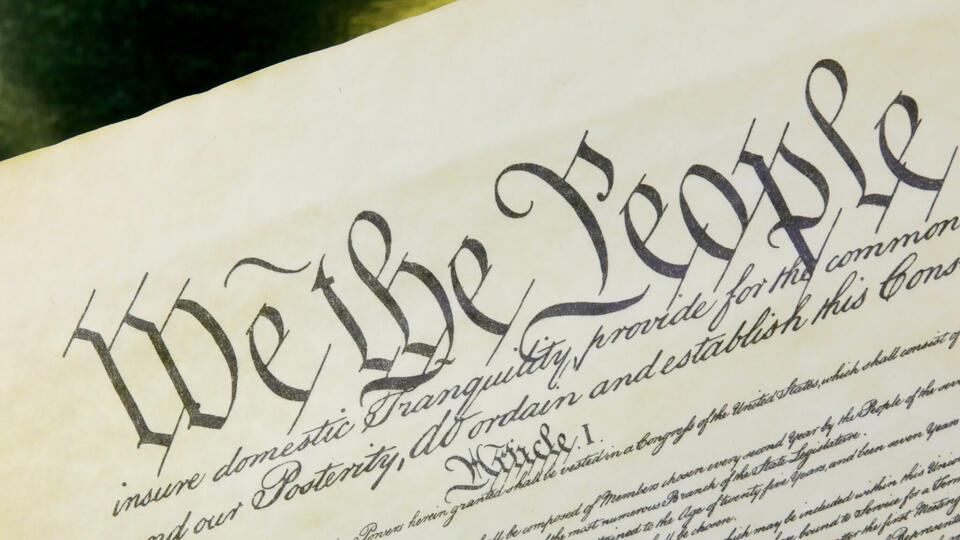 We the People
insure domestic Tranquility, provide for the common
and our Posterity, do ordain and establish this Cons
Article. I.
Powers herein granted shall be vested in a Congress of the United States, which shall consist of
shall be composed of Members chosen every second Year by the People of the
of the most numerous Branch of the State Legislature.
attained to the Age of twenty five Years, and been seven Years
shall be chosen.
which may be included within this Union
bound to Service for a Term
after the first Meeting